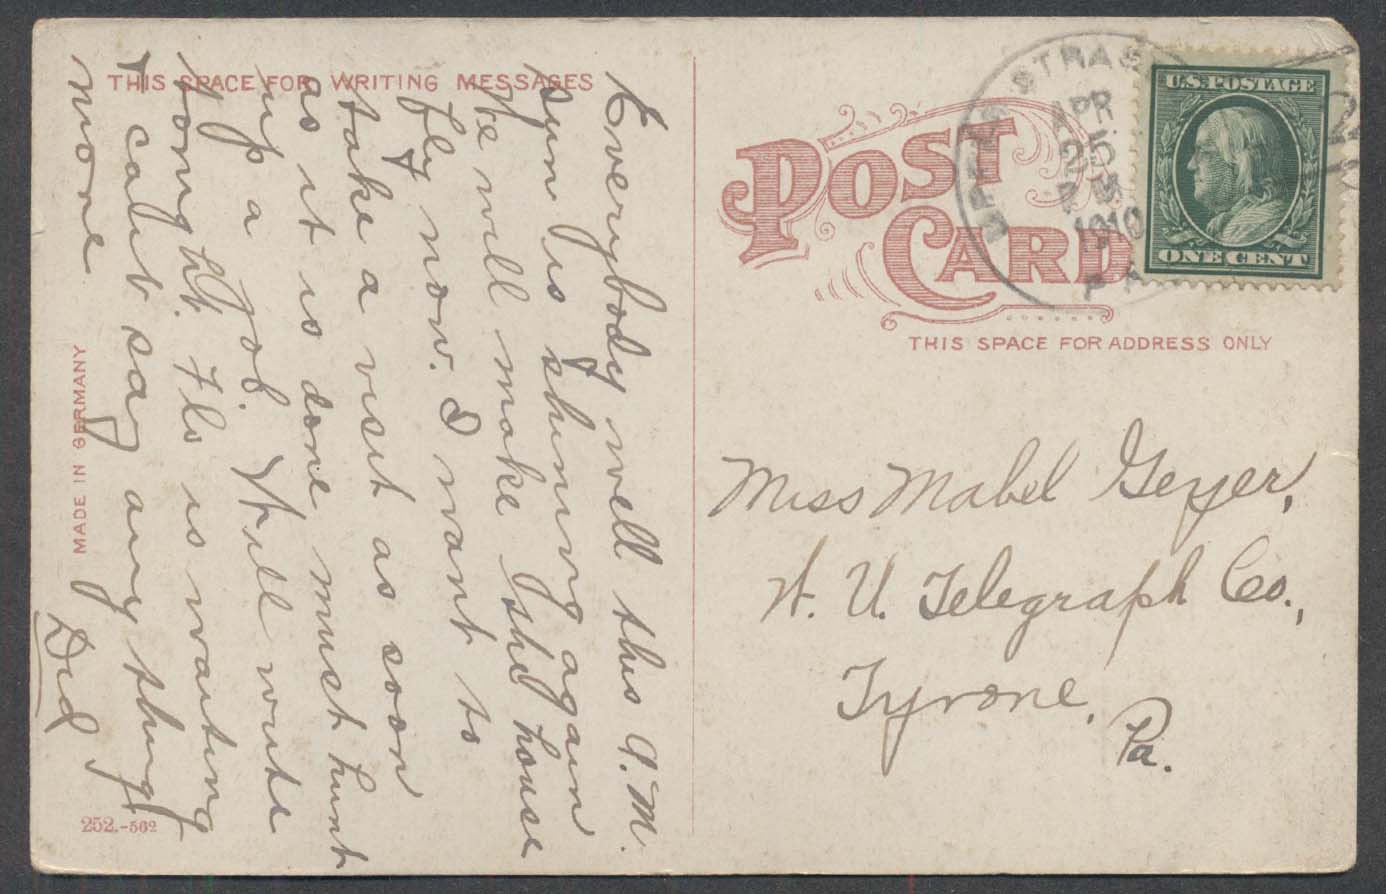 THIS SPACE FOR WRITING MESSAGES
Everybody well this A.M.
sun is shining again
We will make the house
fly now. I want to
take a visit as soon
as it is done must hunt
up a job. Will write
tonght. Flo is waiting
& cant say any thing
more
Did
MADE IN GERMANY
252.-562
POST CARD
THIS SPACE FOR ADDRESS ONLY
APR
25
1910
PA
U.S. POSTAGE
ONE CENT
2
Miss Mabel Geyer,
W. U. Telegraph Co.,
Tyrone,
Pa.